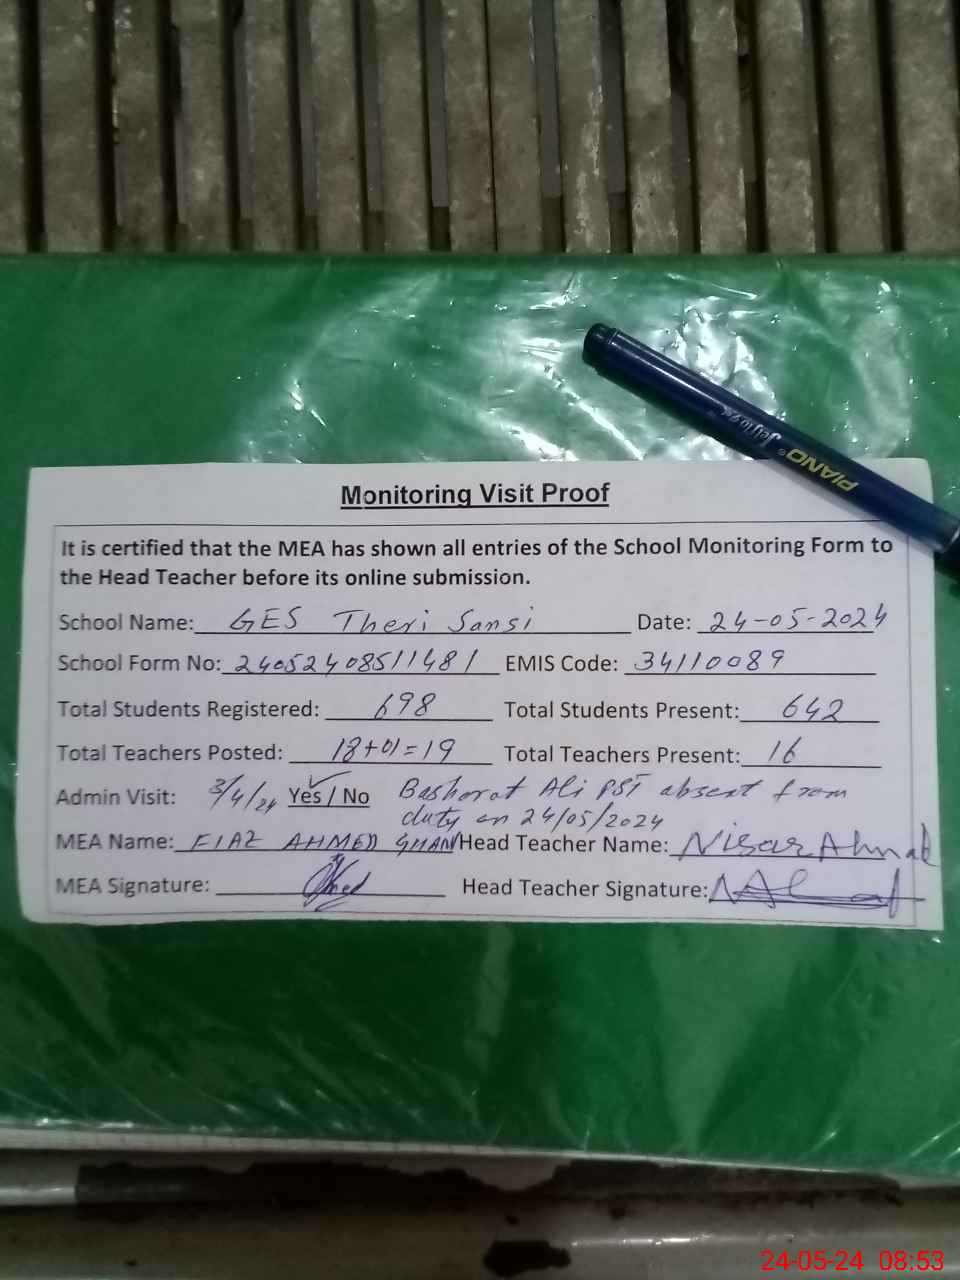 PIANO® Jelflo 9x
Monitoring Visit Proof
It is certified that the MEA has shown all entries of the School Monitoring Form to
the Head Teacher before its online submission.
School Name: GES Theri Sansi Date: 24-05-2024
School Form No: 24052408511481 EMIS Code: 34110089
Total Students Registered: 698 Total Students Present: 642
Total Teachers Posted: 18+01=19 Total Teachers Present: 16
Admin Visit: 3/4/24 Yes / No Basharat Ali PST absent from
duty on 24/05/2024
MEA Name: FIAZ AHMED GHANI Head Teacher Name: Nisar Ahmad
MEA Signature: Head Teacher Signature: NAhmad
24-05-24 08:53